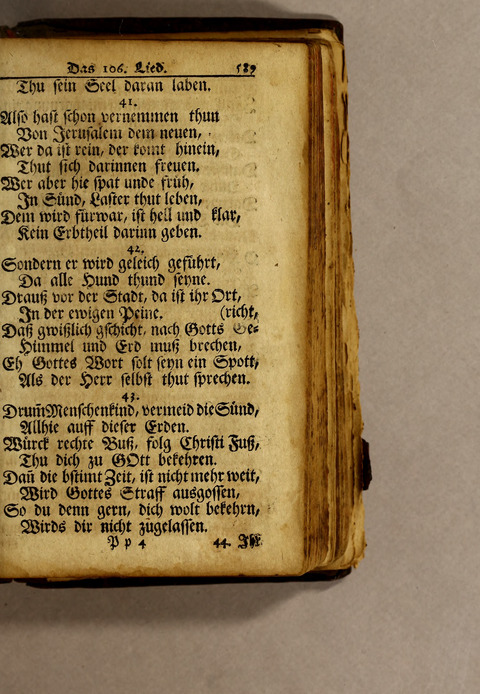 Das 106. Lied. 589
Thu sein Seel daran laben.
41.
Also hast schon vernemmen thun
Von Jerusalem dem neuen,
Wer da ist rein, der komt hinein,
Thut sich darinnen freuen.
Wer aber hie spat unde früh,
In Sünd, Laster thut leben,
Dem wird fürwar, ist hell und klar,
Kein Erbtheil darinn geben.
42.
Sondern er wird geleich geführt,
Da alle Hund thund seyne.
Drauß vor der Stadt, da ist ihr Ort,
In der ewigen Peine. (richt,
Daß gwißlich gschicht, nach Gotts Ge-
Himmel und Erd muß brechen,
Eh Gottes Wort solt seyn ein Spott,
Als der Herr selbst thut sprechen.
43.
Drum̃ Menschenkind, vermeid die Sünd,
Allhie auff dieser Erden.
Würck rechte Buß, folg Christi Fuß,
Thu dich zu GOtt bekehren.
Dañ die bstimt Zeit, ist nicht mehr weit,
Wird Gottes Straff ausgossen,
So du denn gern, dich wolt bekehrn,
Wirds dir nicht zugelassen.
P p 4 44. Ihr